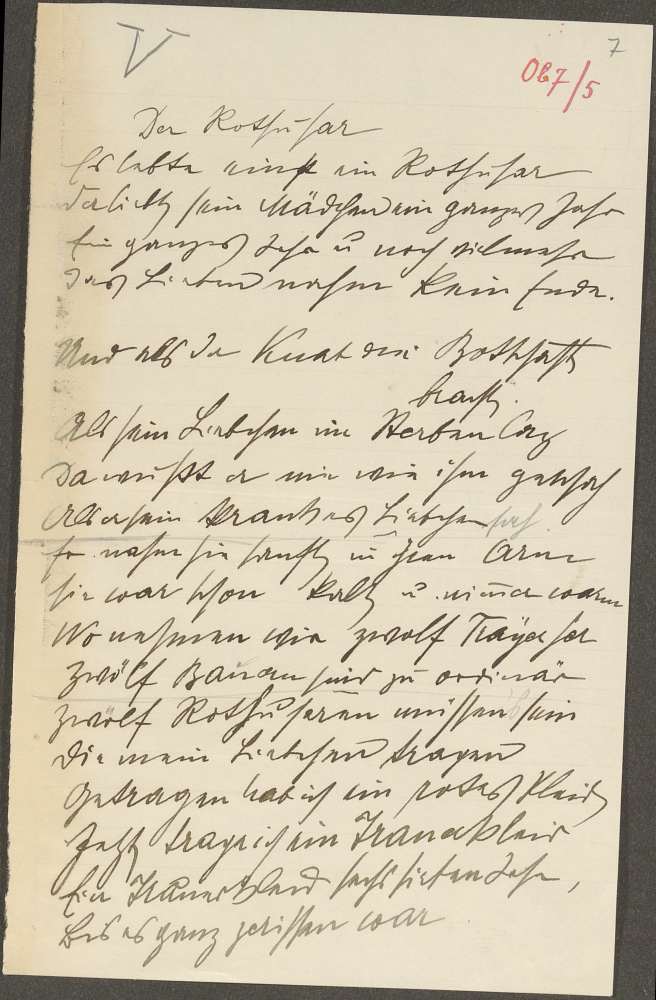 V
7
Ob7/5
Der Rothusar
Es lebte einst ein Rothusar
der liebt sein Mädchen ein ganzes Jahr
Ein ganzes Jahr u noch vielmehr
das Lieben nahm kein Ende.
Und als der Knab die Bothschaft
bracht.
Als sein Liebchen im Sterben lag
Da wußt er nie wie ihm geschah
Als er sein krankes Liebchen sah
Er nahm sie sanft in Arm
sie war schon kalt u. nimer warm
Wo nehmen wir zwolf Träger her
Zwölf Bauern sind zu ordinär
zwölf Rothusaren müssens sein
die mein Liebchen tragen
Getragen hab ich ein rotes Kleid
Jetzt trage ich ein Trauerkleid
Ein Trauerkleid sechs sieben Jahr,
Bis es ganz zerissen war